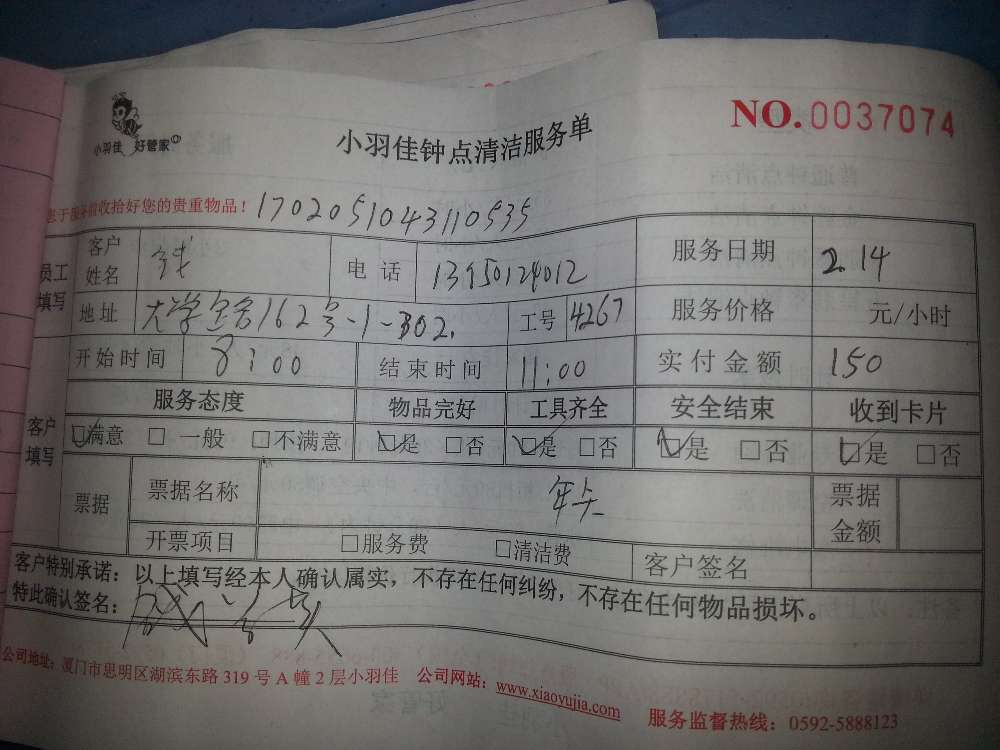 小羽佳 好管家
NO.0037074
小羽佳钟点清洁服务单
收拾好您的贵重物品！ 1702051043110535
员工填写 客户姓名 电话 13950124012 服务日期 2.14
地址 大学 162号-1-302. 工号 4267 服务价格 元/小时
客户填写 开始时间 8:00 结束时间 11:00 实付金额 150
服务态度 物品完好 工具齐全 安全结束 收到卡片
☑满意 □一般 □不满意 ☑是 □否 ☑是 □否 ☑是 □否 ☑是 □否
票据 票据名称 年卡 票据金额
开票项目 □服务费 □清洁费 客户签名
客户特别承诺：以上填写经本人确认属实，不存在任何纠纷，不存在任何物品损坏。
特此确认签名：
公司地址：厦门市思明区湖滨东路 319 号 A 幢 2 层小羽佳 公司网站：www.xiaoyujia.com 服务监督热线：0592-5888123